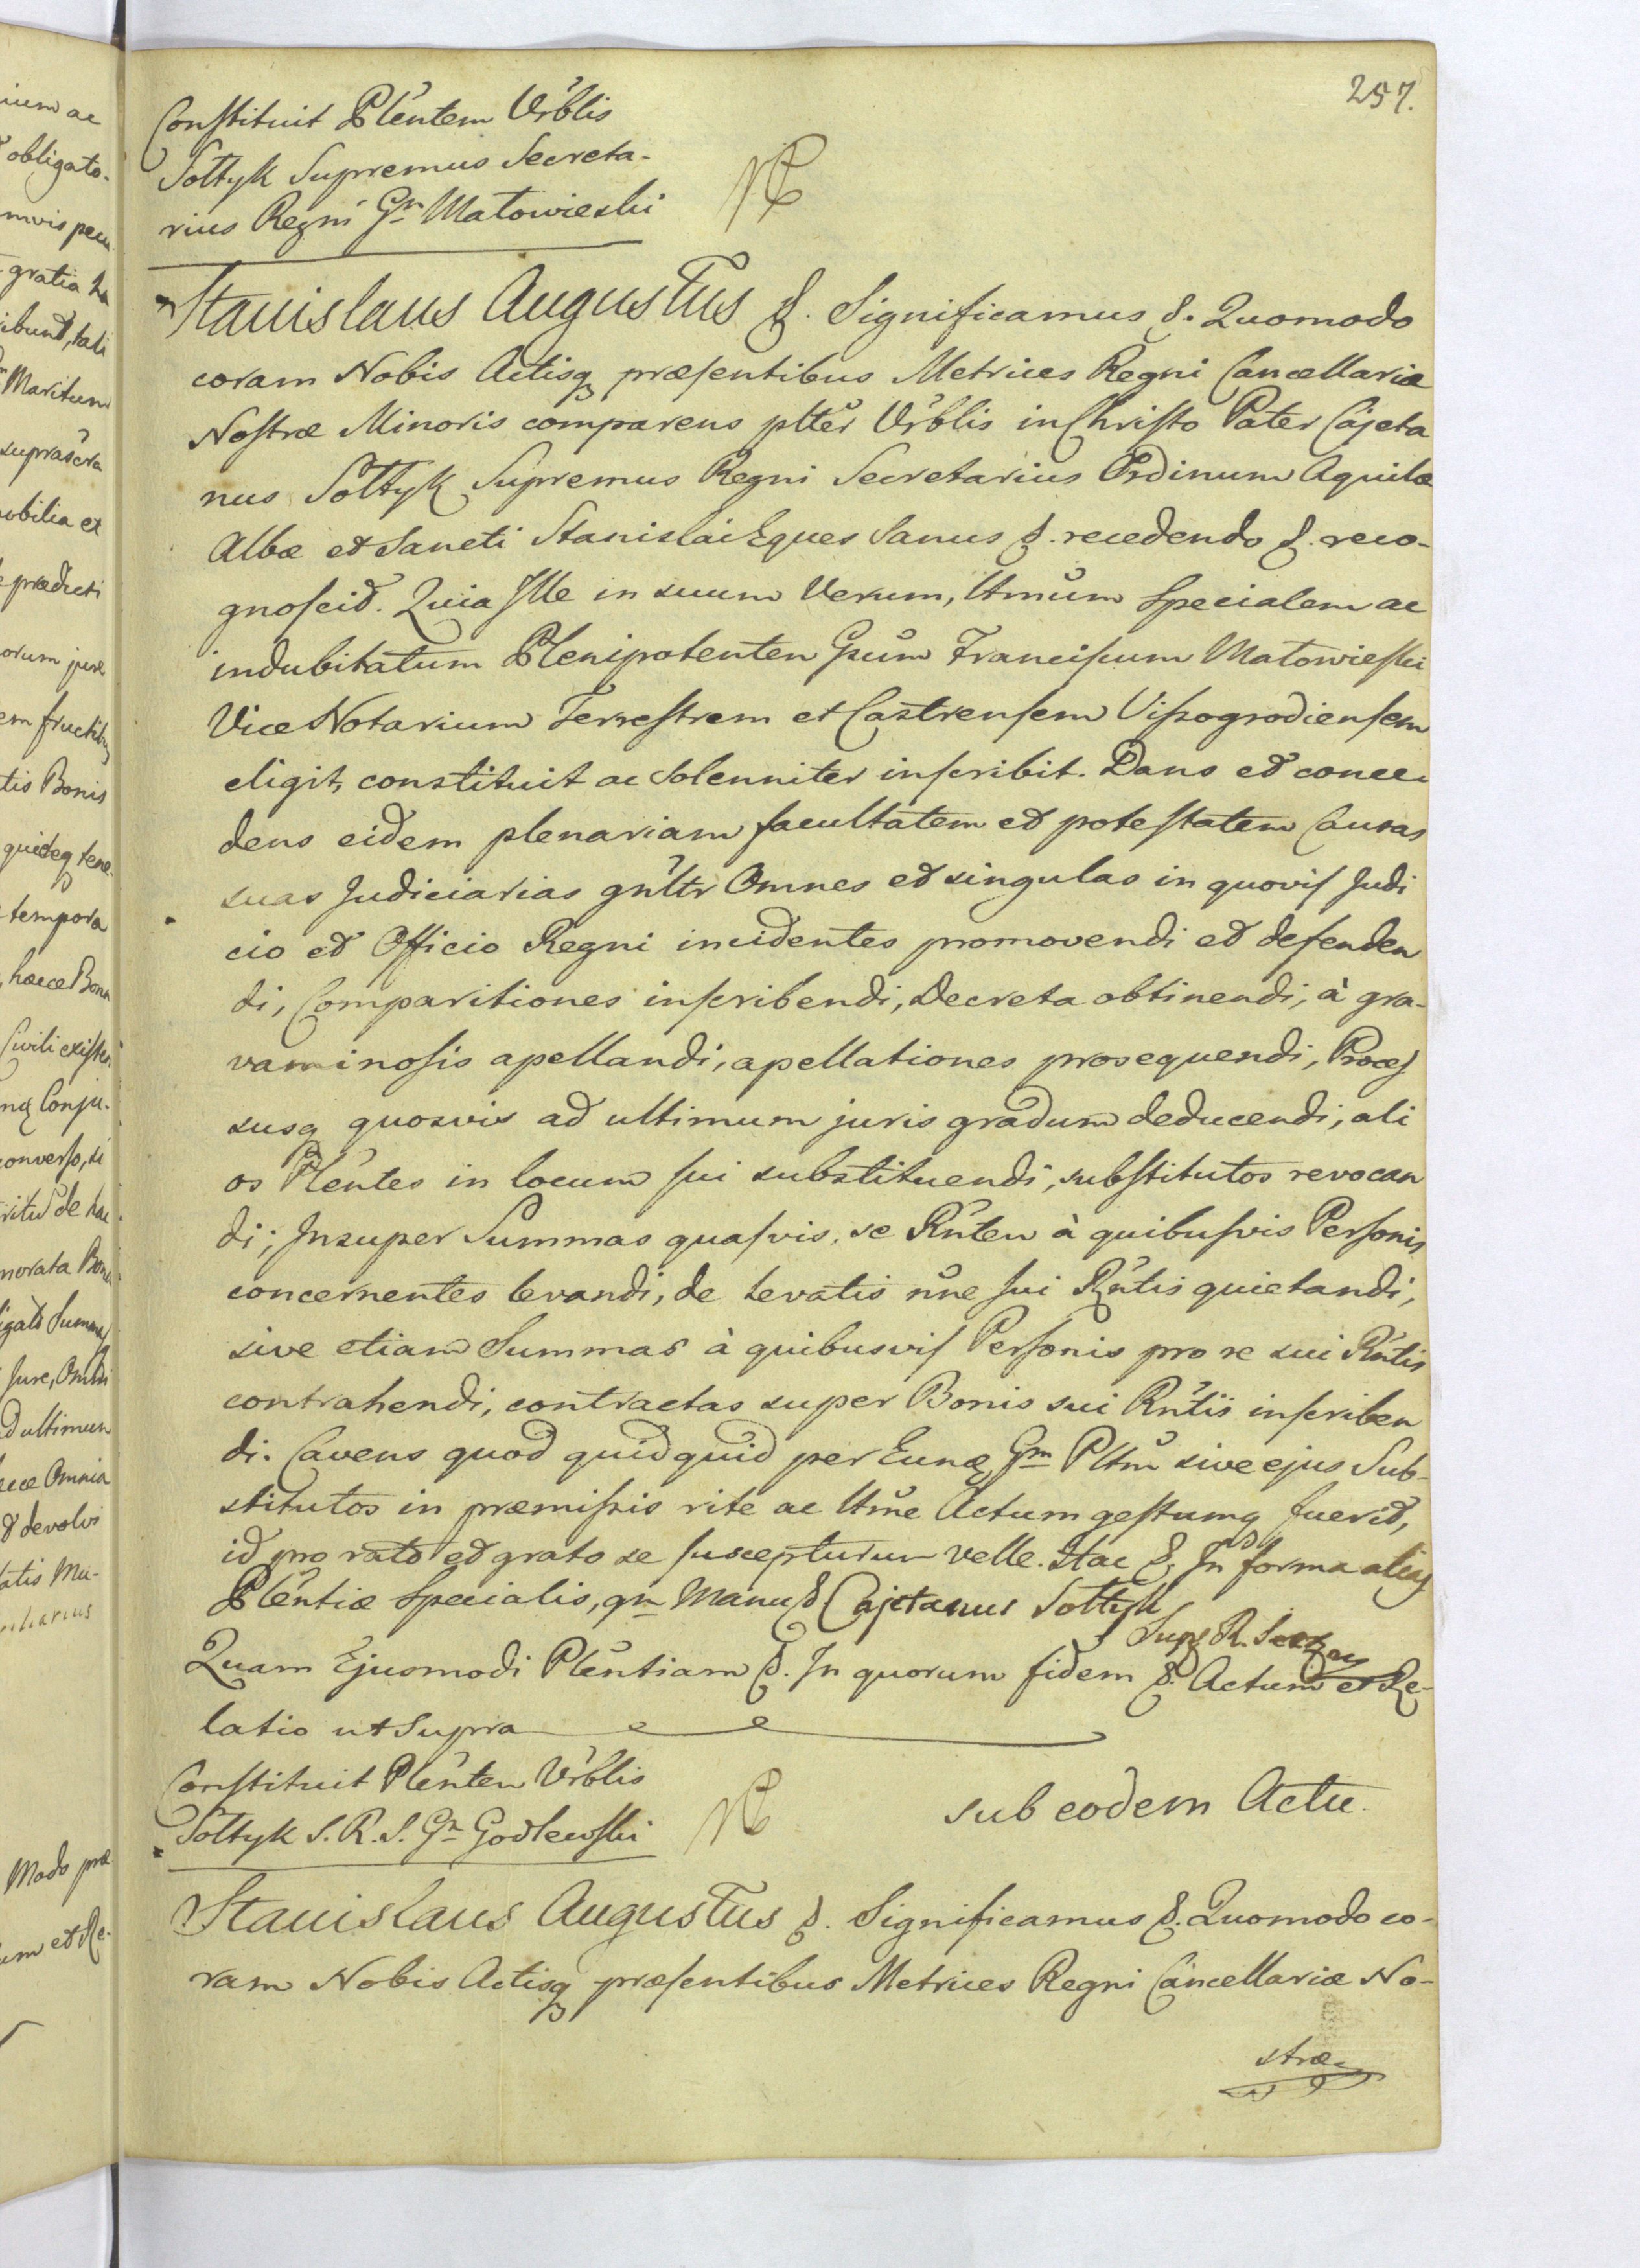 257.
Constituit Plentem Vrblis
Sołtyk Supremus Secreta-
rius Regni Gn Małowieski
Stanislaus Augustus &. Significamus &. Quomodo
coram Nobis Actisq præsentibus Metrices Regni Cancellariæ
Nostræ Minoris comparens pltter Vrblis in Christo Pater Cajeta
nus Sołtyk Supremus Regni Secretarius Ordinum Aquilæ
Albæ et Sancti Stanislai Eques Sanus &. recedendo &. reco-
gnoscit. Quia Ille in suum Verum, ltmum Specialem ac
indubitatum Plenipotenten Gsum Franciscum Małowieski
Vice Notarium Terrestrem et Castrensem Viszogrodiensem
eligit, constituit ac Solenniter inscribit. Dans et conce-
dens eidem plenariam facultatem et potestatem Causas
suas Judiciarias gnltr Omnes et singulas in quovis Judi
cio et Officio Regni incidentes promovendi et defenden
di, Comparitiones inscribendi, Decreta obtinendi, à gra-
vaminosis apellandi, apellationes prosequendi, Proces
susq quosvis ad ultimum juris gradum deducendi, ali
os Plentes in locum sui substituendi, substitutos revocan
di; Insuper Summas quasvis, se Rnten à quibusvis Personis
concernentes levandi, de levatis nne sui Rntis quietandi,
sive etiam Summas à quibusvis Personis pro re sui Rntis
contrahendi, contractas super Bonis sui Rntis inscriben
di. Cavens quod quidquid per Eunq Gm Pltm sive ejus Sub-
stitutos in præmissis rite ac ltme Actum gestumq fuerit,
id pro rato et grato se suscepturum velle. Hac &. In forma alias
Plentiæ Specialis, qn Manu & Cajetanus Sołtyk
Supr R. Secr
Quam Ejusmodi Plentiam &. In quorum fidem &. Actum et Re-
latio ut Supra
Constituit Plenten Vrblis
Sołtyk S. R. S. Gn Godlewski
sub eodem Actu.
Stanislaus Augustus &. Significamus &. Quomodo co-
ram Nobis Actisq præsentibus Metrices Regni Cancellariæ No-
stræ